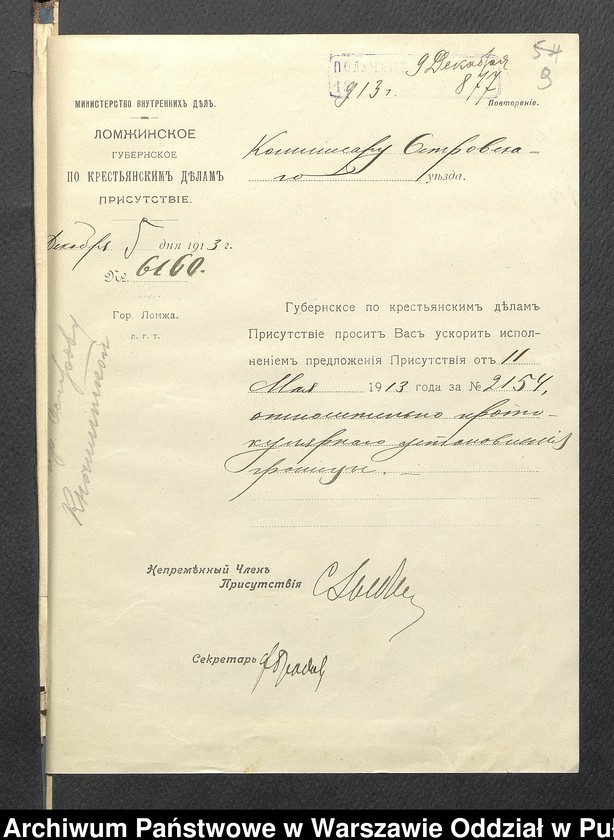 54
9
ПОЛУЧЕНО 9 Декабря
1913 г. 877
Повтореніе.
МИНИСТЕРСТВО ВНУТРЕННИХЪ ДѢЛЪ.
ЛОМЖИНСКОЕ
ГУБЕРНСКОЕ
ПО КРЕСТЬЯНСКИМЪ ДѢЛАМЪ
ПРИСУТСТВІЕ.
Декабря 5 дня 1913 г.
№ 6160.
Гор. Ломжа.
л. г. т.
Коммисару Островска-
го уѣзда.
Губернское по крестьянскимъ дѣламъ
Присутствіе проситъ Васъ ускорить испол-
неніемъ предложенія Присутствія отъ 11
Мая 1913 года за № 2154,
относительно прото-
кулярнаго установленія
границы.
Непремѣнный Членъ
Присутствія
Секретарь
Archiwum Państwowe w Warszawie Oddział w Pu